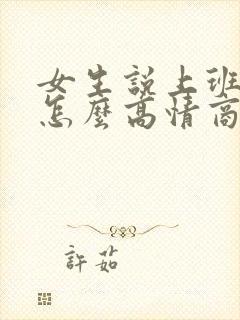 女生說上班
怎麼高情商
許茹